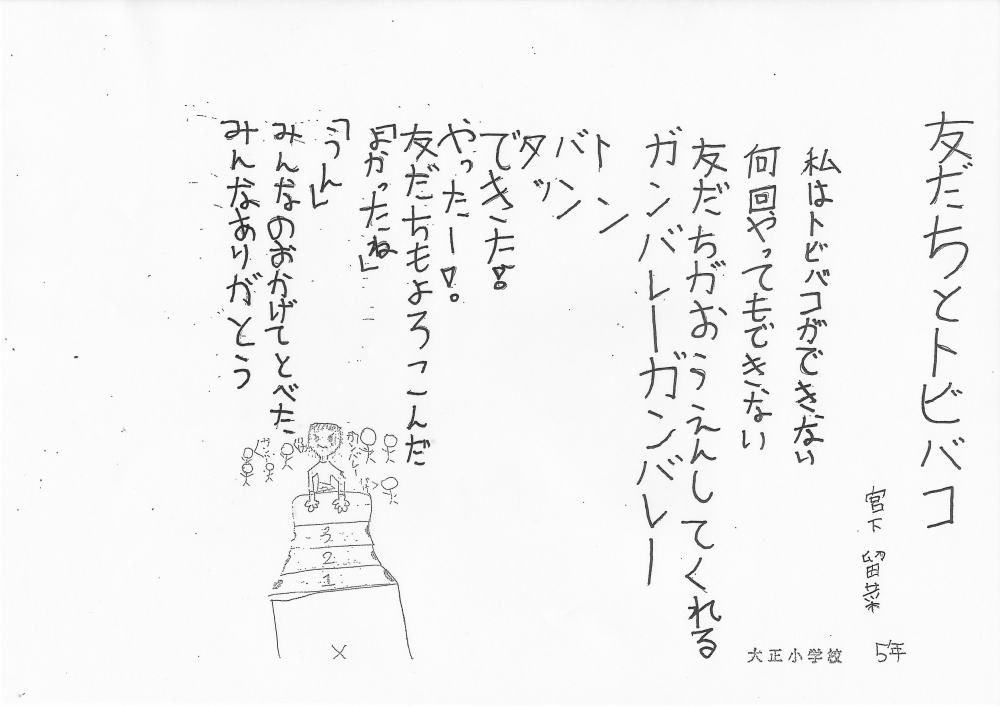 友だちとトビバコ
宮下 留菜
大正小学校 5年
私はトビバコができない
何回やってもできない
友だちがおうえんしてくれる
ガンバレーガンバレー
トン
バン
タッ
できた!
やったー!
友だちもよろこんだ
「よかったね」
「うん」
みんなのおかげでとべた
みんなありがとう
ガンバレー
3
2
1